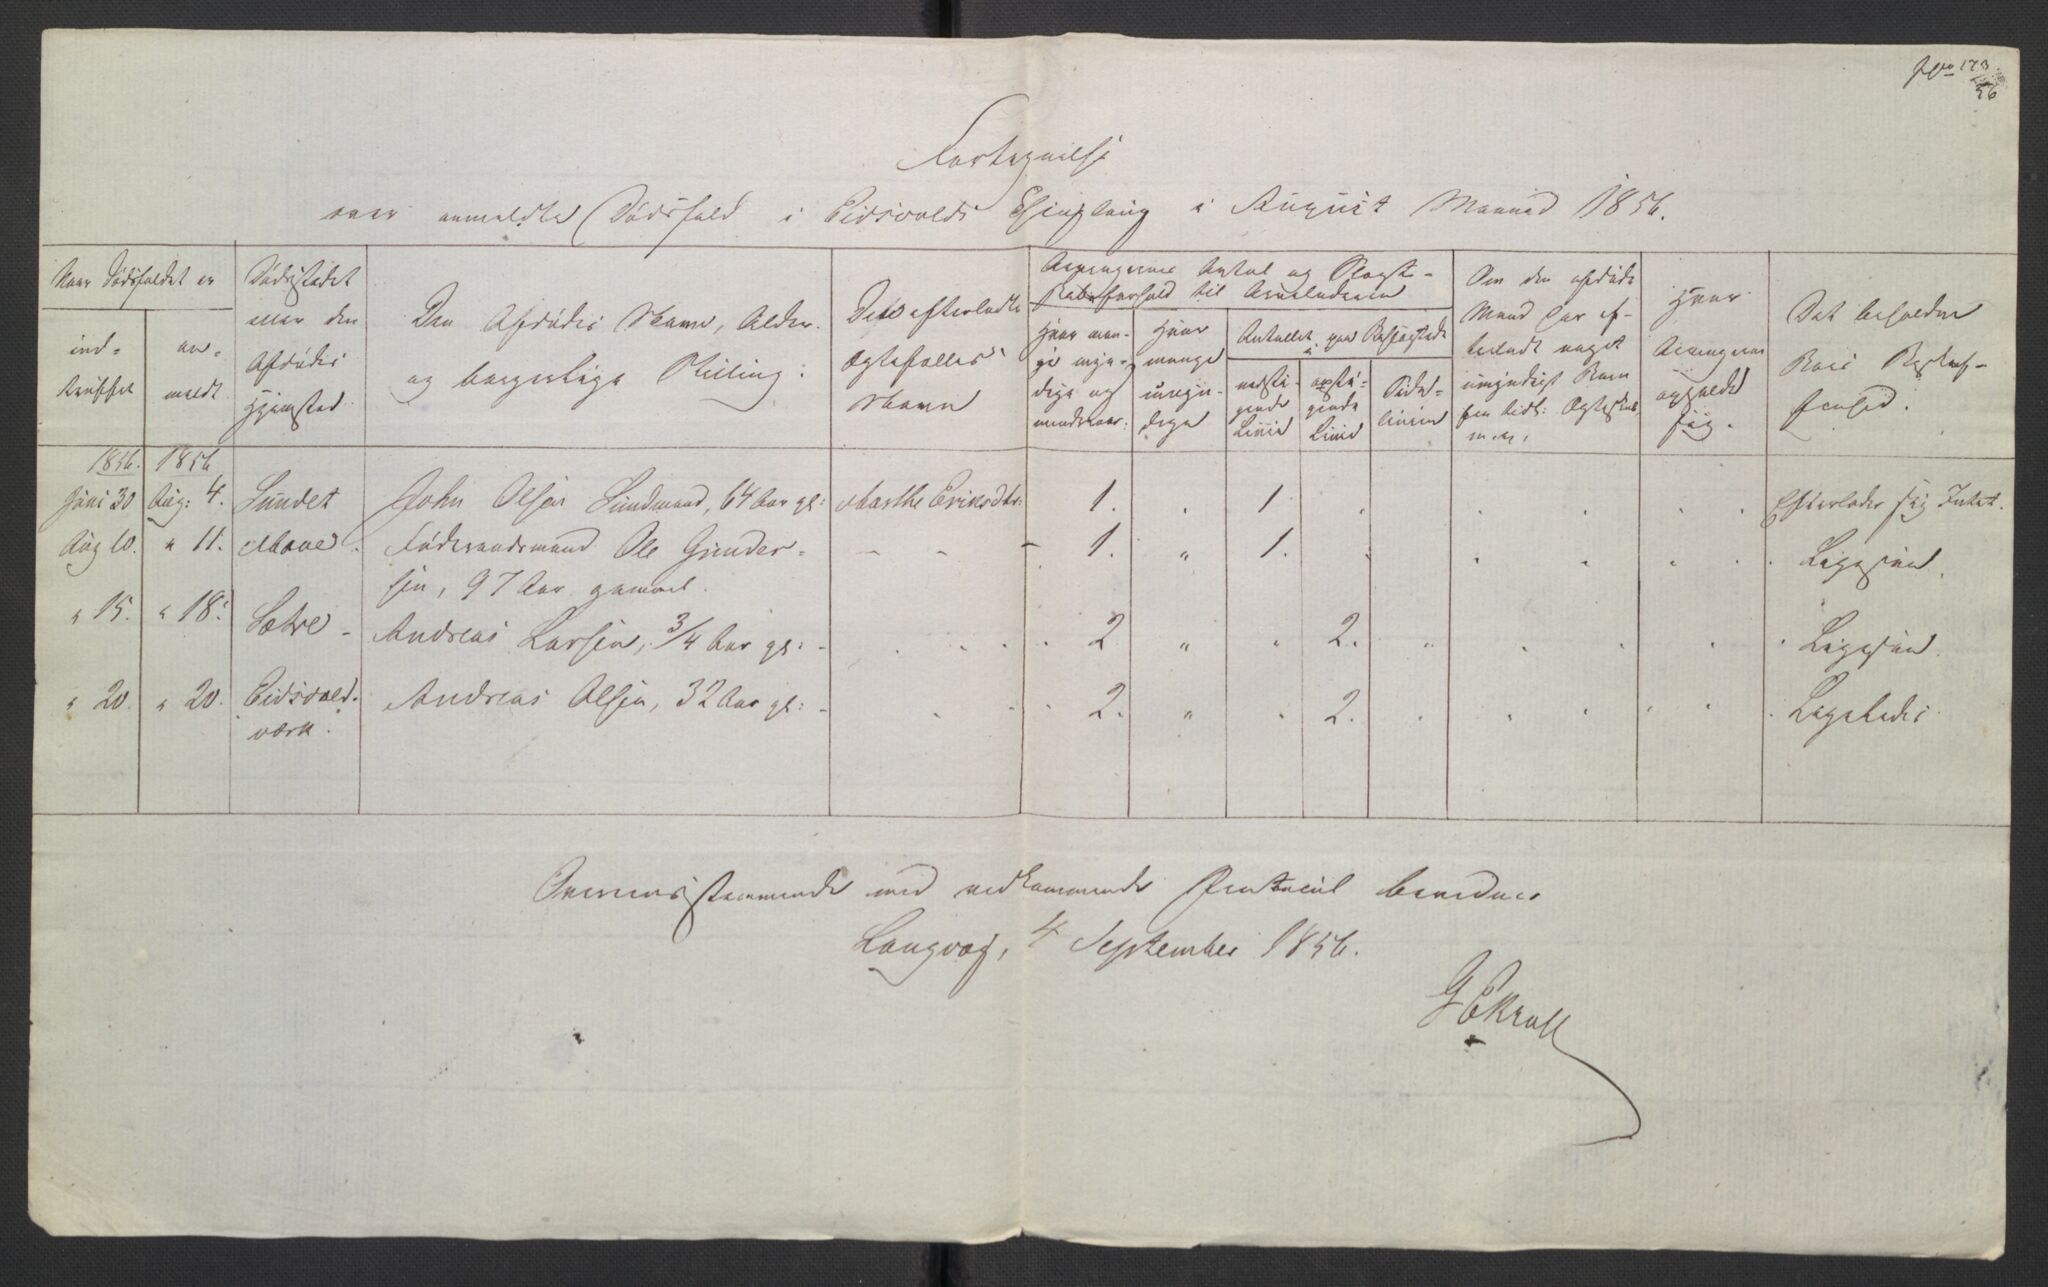 Fortegnelse
over anmeldte Dødsfald i Eidsvolds Thinglaug i August Maaned 1856.
Naar Dødsfaldet er
ind-
truffet
an-
meldt.
Dødsstedet
eller den
Afdødes
Hjemsted
Den Afdødes Navn, Alder
og borgerlige Stilling:
Den efterladte
Ægtefælles
Navn
Arvingernes Antal og Slægt-
skabsforhold til Arveladeren
Hvor man-
ge myn-
dige og
mindreaar:
Hvor
mange
umyn-
dige
Antallet paa Slægtskab
nedsti-
gende
Linie
opsti-
gende
Linie
Side-
linien
Om den afdøde
Mand har ef-
terladt noget
umyndigt Barn
udenfor Ægteskab
m. m.
Hvor
Arvingerne
opholde
sig.
Det beholdne
Boes Beskaf-
fenhed.
1856. 1856
Juni 30 Aug: 4. Sundet John Olsen Sundmand, 64 Aar gl: Marthe Eriksdtr: 1. 1 Efterlader sig Intet.
Aug 10. " 11. Moove. Føderaadsmand Ole Gunder- 1. " 1. Ligesaa
sen, 97 Aar gammel.
" 15. " 18. Sætre Andreas Larsen, 3/4 Aar gl: 2 " " 2. " Ligesaa.
" 20. " 20. Eidsvold- Andreas Olsen, 32 Aar gl: 2. " 2. Ligeledes
værk.
Overensstemmende med vedkommende Protocol bevidnes
Langvag, 4 September 1856.
G E Krall